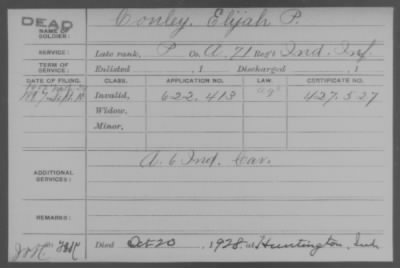 DEAD
NAME OF SOLDIER: Conley, Elijah P.
SERVICE: Late rank, P Co. A, 71 Reg't Ind. Inf.
TERM OF SERVICE: Enlisted , 1 Discharged , 1
DATE OF FILING. CLASS. APPLICATION NO. LAW. CERTIFICATE NO.
Invalid, 622.413 age 427.527
Widow,
Minor,
ADDITIONAL SERVICES: A. 6 Ind. Cav.
REMARKS:
Died Oct 20, 1928, at Huntington, Ind.